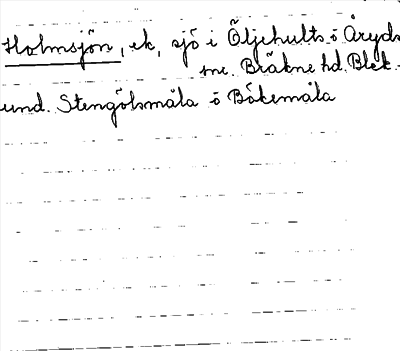 Holmsjön, ek, sjö i Öljehults o Åryds
sne. Bräkne hd. Blek.
und. Stengölsmåla o Bökemåla